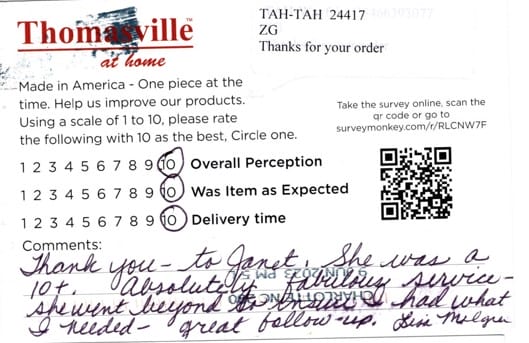 Thomasville™
at home
TAH-TAH 24417
ZG
Thanks for your order
Made in America - One piece at the
time. Help us improve our products.
Using a scale of 1 to 10, please rate
the following with 10 as the best, Circle one.
Take the survey online, scan the
qr code or go to
surveymonkey.com/r/RLCNW7F
1 2 3 4 5 6 7 8 9 10 Overall Perception
1 2 3 4 5 6 7 8 9 10 Was Item as Expected
1 2 3 4 5 6 7 8 9 10 Delivery time
Comments:
Thank you - to Janet. She was a
10+. Absolutely fabulous service -
she went beyond to ensure I had what
I needed - great follow-up. Lisa